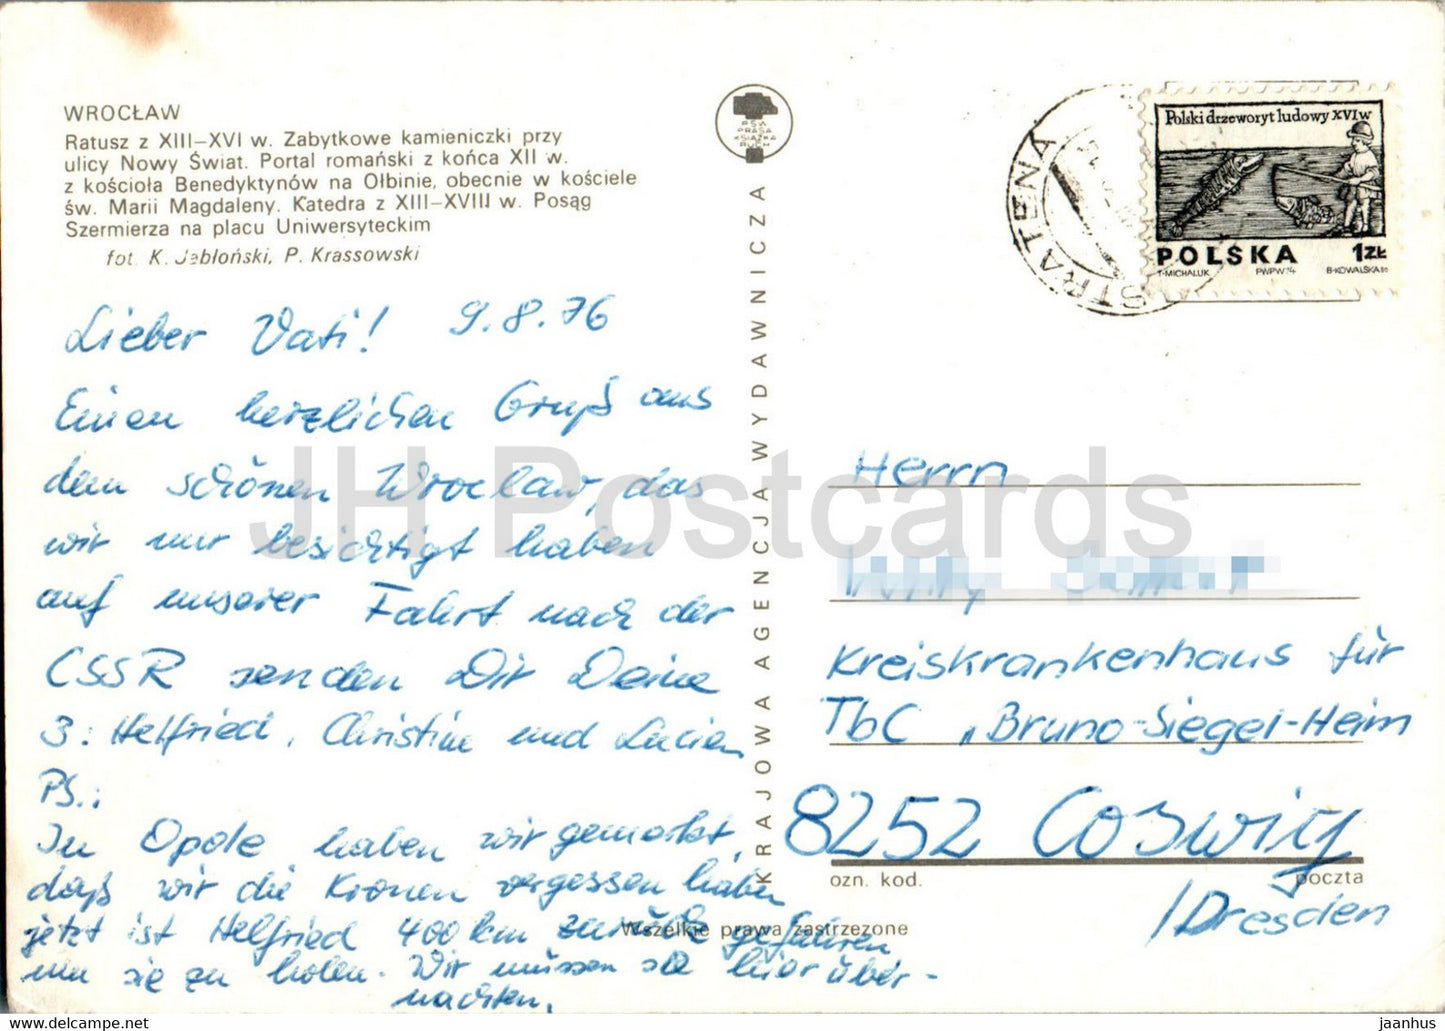 WROCŁAW
Ratusz z XIII–XVI w. Zabytkowe kamieniczki przy
ulicy Nowy Świat. Portal romański z końca XII w.
z kościoła Benedyktynów na Ołbinie, obecnie w kościele
św. Marii Magdaleny. Katedra z XIII–XVIII w. Posąg
Szermierza na placu Uniwersyteckim
fot. K. Jabłoński, P. Krassowski
Lieber Vati! 9.8.76
Einen herzlichen Gruß aus
dem schönen Wroclaw, das
wir nur besichtigt haben
auf unserer Fahrt nach der
CSSR senden Dir Deine
3: Helfried, Christine und Lucien
PS.:
In Opole haben wir gemerkt,
daß wir die Kronen vergessen haben
jetzt ist Helfried 400 km zurück gefahren
um sie zu holen. Wir müssen so hier über-
nachten.
PSW
PRASA
KSIĄŻKA
RUCH
KRAJOWA AGENCJA WYDAWNICZA
STRATENÁ
Polski drzeworyt ludowy XVI w
POLSKA 1 ZŁ
T-MICHALUK PWPW 74 B-KOWALSKA
Herrn
Kreiskrankenhaus für
TbC „Bruno-Siegel-Heim
8252 Coswig
ozn. kod. poczta
/Dresden
Wszelkie prawa zastrzezone
JH Postcards
https://www.jhpostcards.com jaanhus